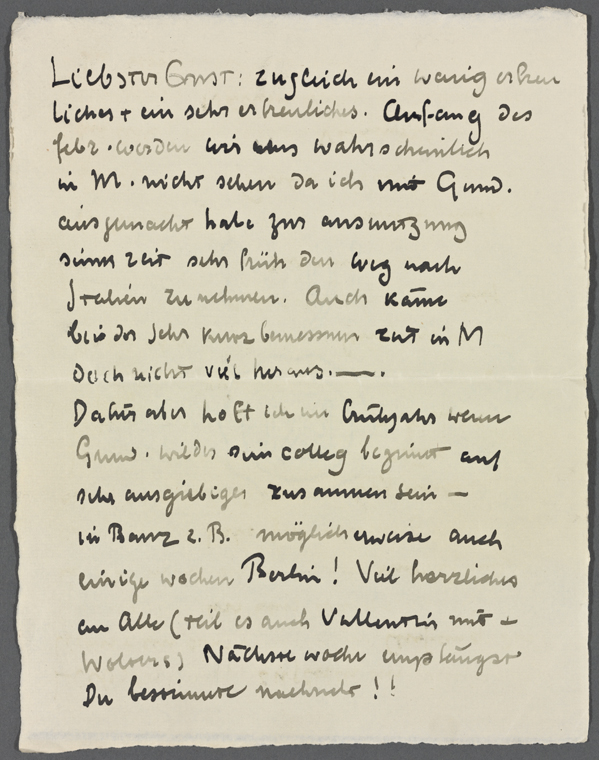 Liebster Ernst: zugleich ein wenig erfreu
liches + ein sehr erfreuliches. Anfang des
febr. werden wir uns wahrscheinlich
in M. nicht sehen da ich mit Gund.
ausgemacht habe zur ausnutzung
seiner zeit sehr früh den weg nach
Italien zu nehmen. Auch käme
bei der sehr kurz bemessnen zeit in M
doch nicht viel heraus. — .
Dafür aber hoff ich im frühjahr wenn
Gund. wieder sein colleg beginnt auf
sehr ausgiebiges zusammen sein —
in Banz z. B. möglicherweise auch
einige wochen Berlin! Viel herzliches
an Alle (teil es auch Vallentin mit +
Wolters) Nächste woche empfängst
Du bestimmte nachricht!!